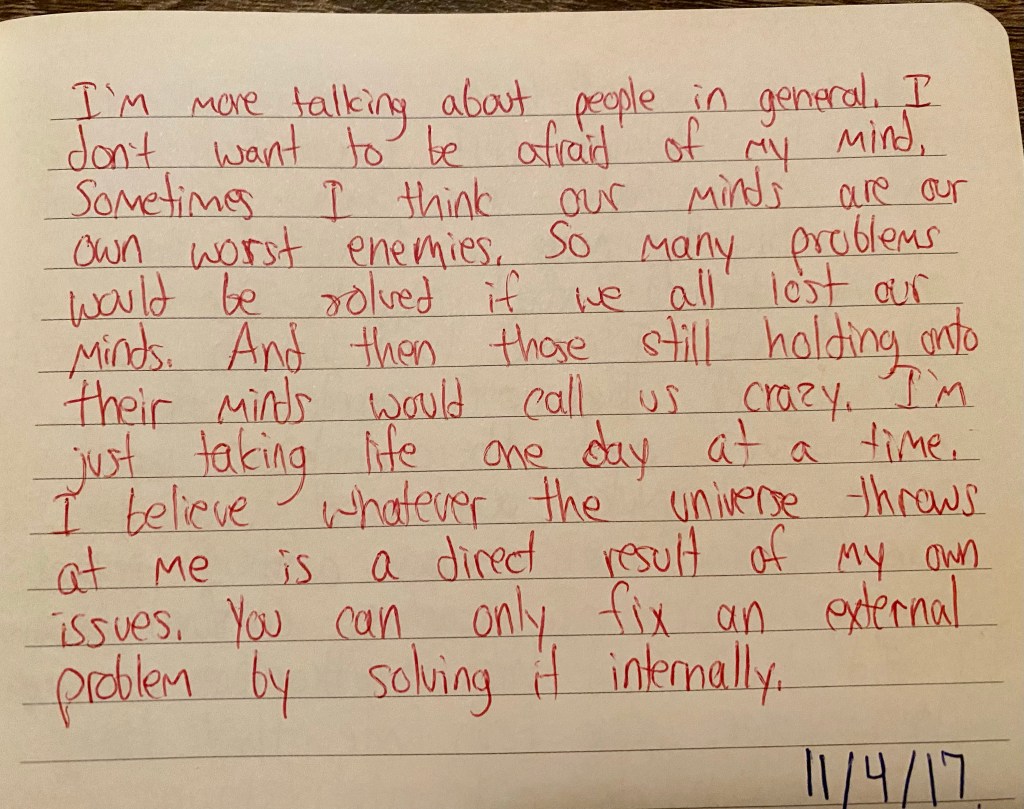 I'm more talking about people in general. I
don't want to be afraid of my mind.
Sometimes I think our minds are our
own worst enemies. So many problems
would be solved if we all lost our
minds. And then those still holding onto
their minds would call us crazy. I'm
just taking life one day at a time.
I believe whatever the universe throws
at me is a direct result of my own
issues. You can only fix an external
problem by solving it internally.
11/4/17